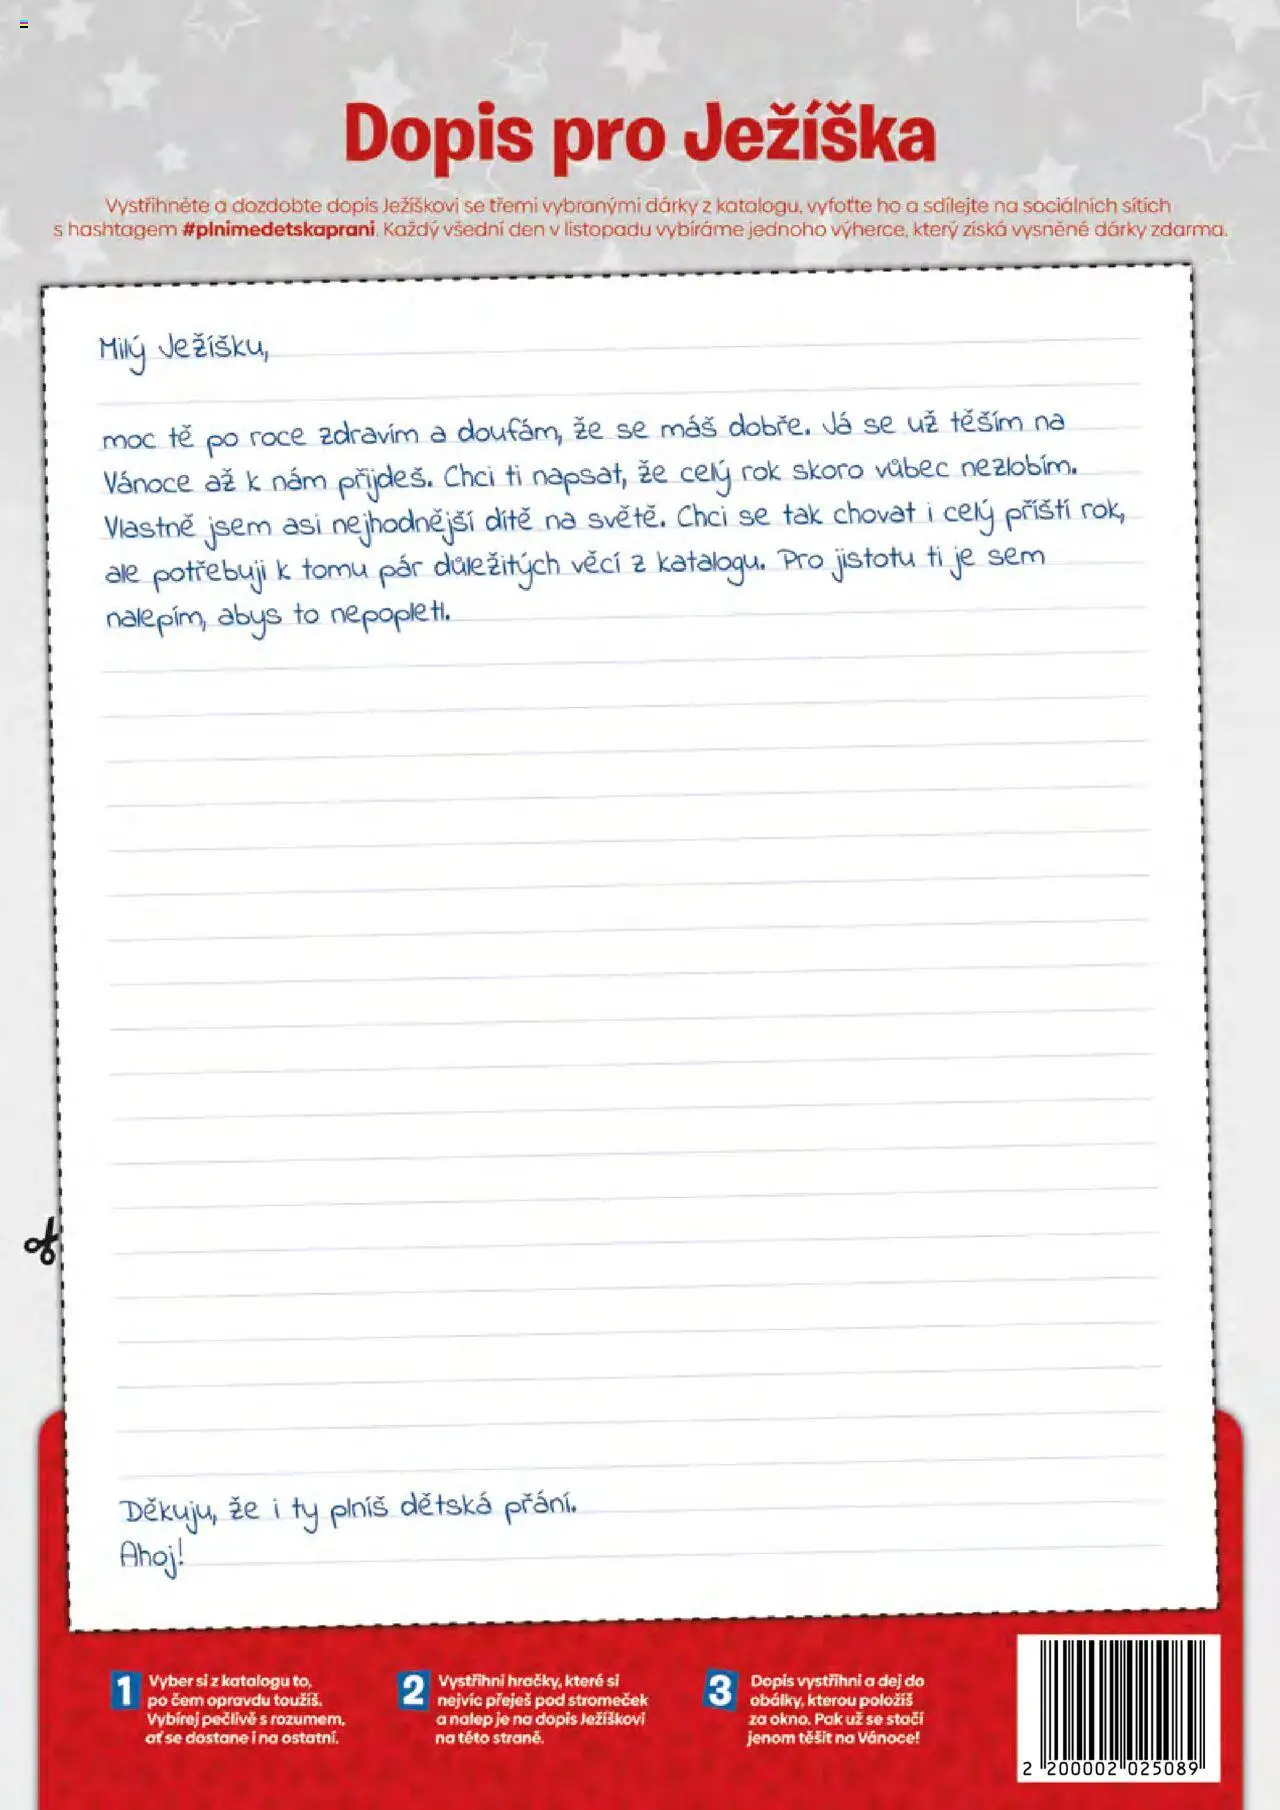 Dopis pro Ježíška
Vystřihněte a dozdobte dopis Ježíškovi se třemi vybranými dárky z katalogu, vyfoťte ho a sdílejte na sociálních sítích
s hashtagem #plnimedetskaprani. Každý všední den v listopadu vybíráme jednoho výherce, který získá vysněné dárky zdarma.
Milý Ježíšku,
moc tě po roce zdravím a doufám, že se máš dobře. Já se už těším na
Vánoce až k nám přijdeš. Chci ti napsat, že celý rok skoro vůbec nezlobím.
Vlastně jsem asi nejhodnější dítě na světě. Chci se tak chovat i celý příští rok,
ale potřebuji k tomu pár důležitých věcí z katalogu. Pro jistotu ti je sem
nalepím, abys to nepopletl.
Děkuju, že i ty plníš dětská přání.
Ahoj!
1 Vyber si z katalogu to,
po čem opravdu toužíš.
Vybírej pečlivě s rozumem,
ať se dostane i na ostatní.
2 Vystřihni hračky, které si
nejvíc přeješ pod stromeček
a nalep je na dopis Ježíškovi
na této straně.
3 Dopis vystřihni a dej do
obálky, kterou položíš
za okno. Pak už se stačí
jenom těšit na Vánoce!
2 200002 025089